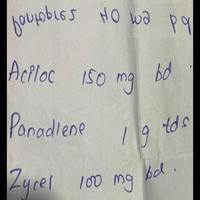 Aciloc 150 mg bd.
Panadiene 1 g tds
Zycel 100 mg bd.